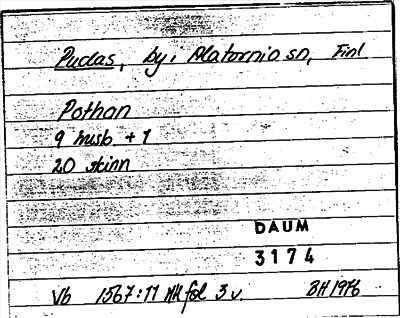 Pudas, by i Alatornio sn, Finl
Pothan
9 husb + 1
20 skinn
DAUM
3174
Vb 1567:11 MH fol 3 v. BH 1976